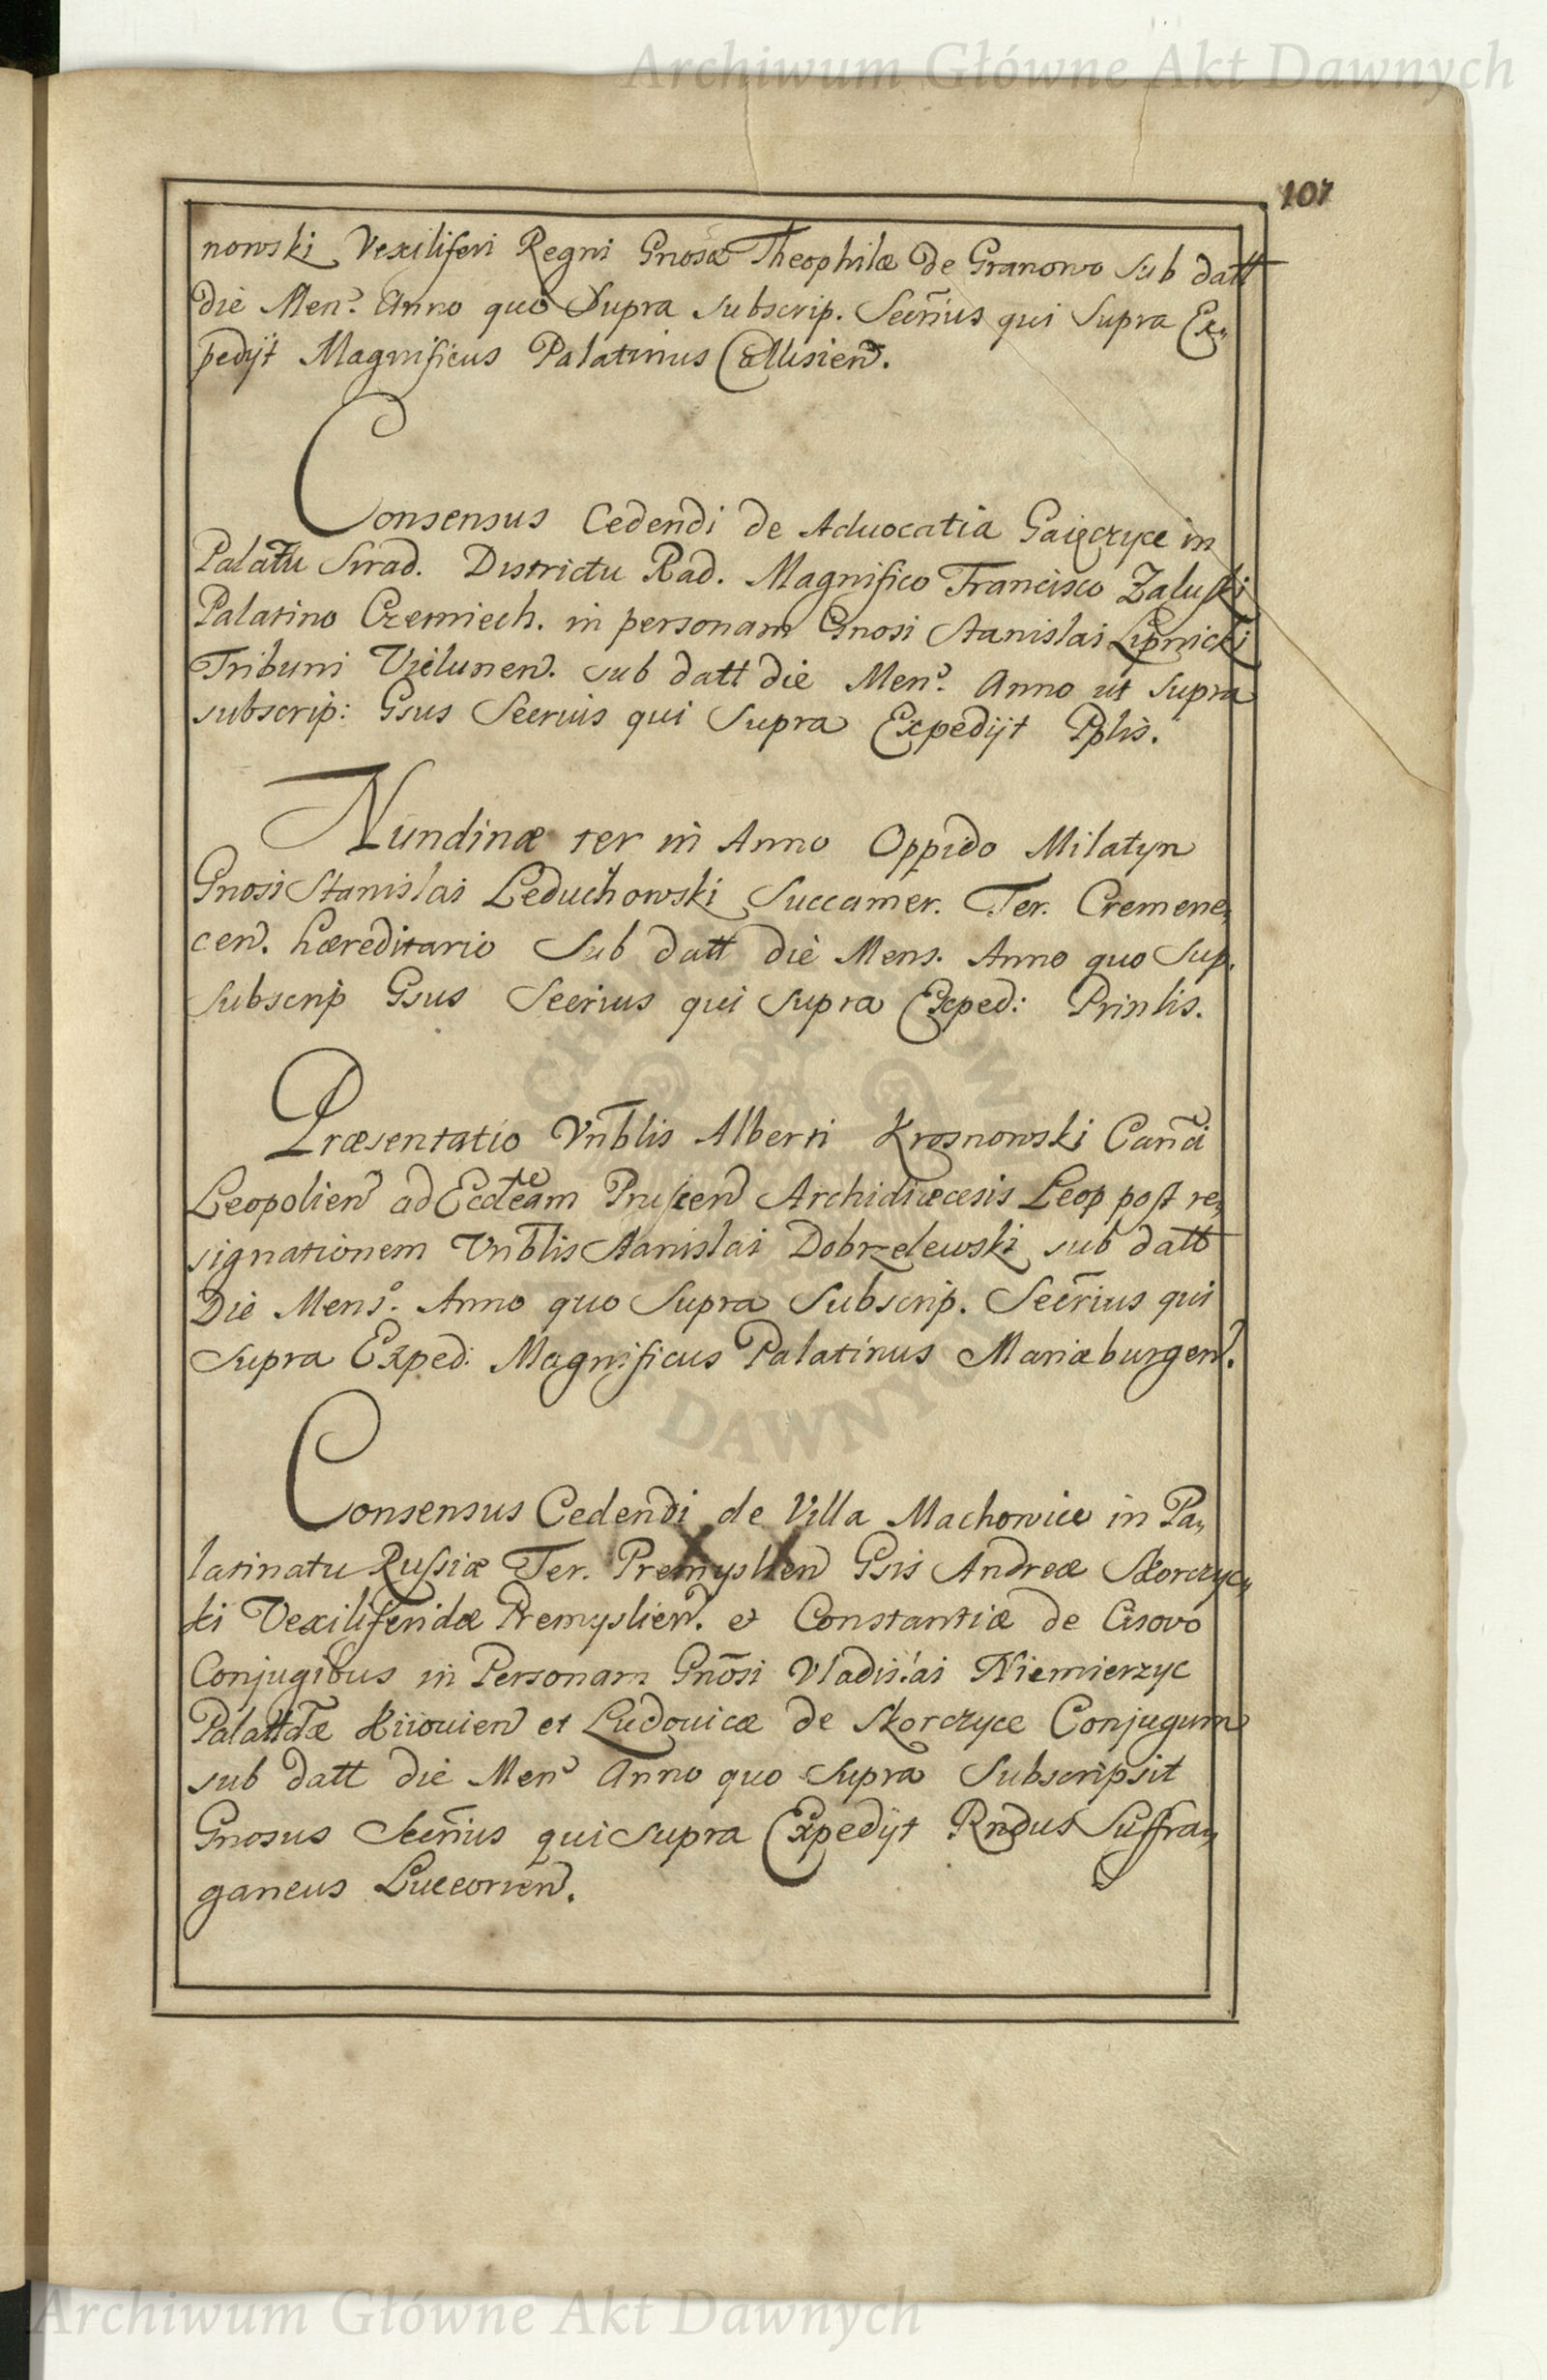 Archiwum Główne Akt Dawnych
107
nowski Vexiliferi Regni Gnosæ Theophilæ de Granowo sub datt
die Men. Anno quo Supra subscrip. Secrius qui supra Ex„
pedijt Magnificus Palatinus Callisien.
Consensus Cedendi de Advocatia Gaięczyce in
Palatu Sirad. Districtu Rad. Magnifico Francisco Zaluski
Palatino Czerniech. in personam Gnosi Stanislai Lipnicki
Tribuni Vielunen. sub datt die Men. Anno ut supra
subscrip: Gsus Secrius qui supra Expedijt Pplis.
Nundinæ ter in Anno Oppido Milatyn
Gnosi Stanislai Leduchowski Succamer. Ter. Cremene„
cen. hæreditario sub datt die Mens. Anno quo sup.
subscrip Gsus Secrius qui supra Exped: Prinlis.
Præsentatio Vnblis Alberti Krosnowski Canci
Leopolien ad Eccleam Archidiæcesis Leop post re„
signationem Vnblis Stanislai Dobrzelewski sub datt
Die Mens. Anno quo supra Subscrip. Secrius qui
supra Exped. Magnificus Palatinus Mariæburgen.
Consensus Cedendi de Villa Machowice in Pa„
latinatu Russiæ Ter. Premyslien Gsis Andreæ Skorczyc„
ki Vexiliferidæ Premyslien. et Constantiæ de Cisovo
Conjugibus in Personam Gnosi Vladislai Niemierzyc
Palattdæ Kiiovien et Ludovicæ de Skorczyce Conjugum
sub datt die Men Anno quo supra Subscripsit
Gnosus Secrius qui supra Expedijt Rndus Suffra„
ganeus Luceorien.
Archiwum Główne Akt Dawnych